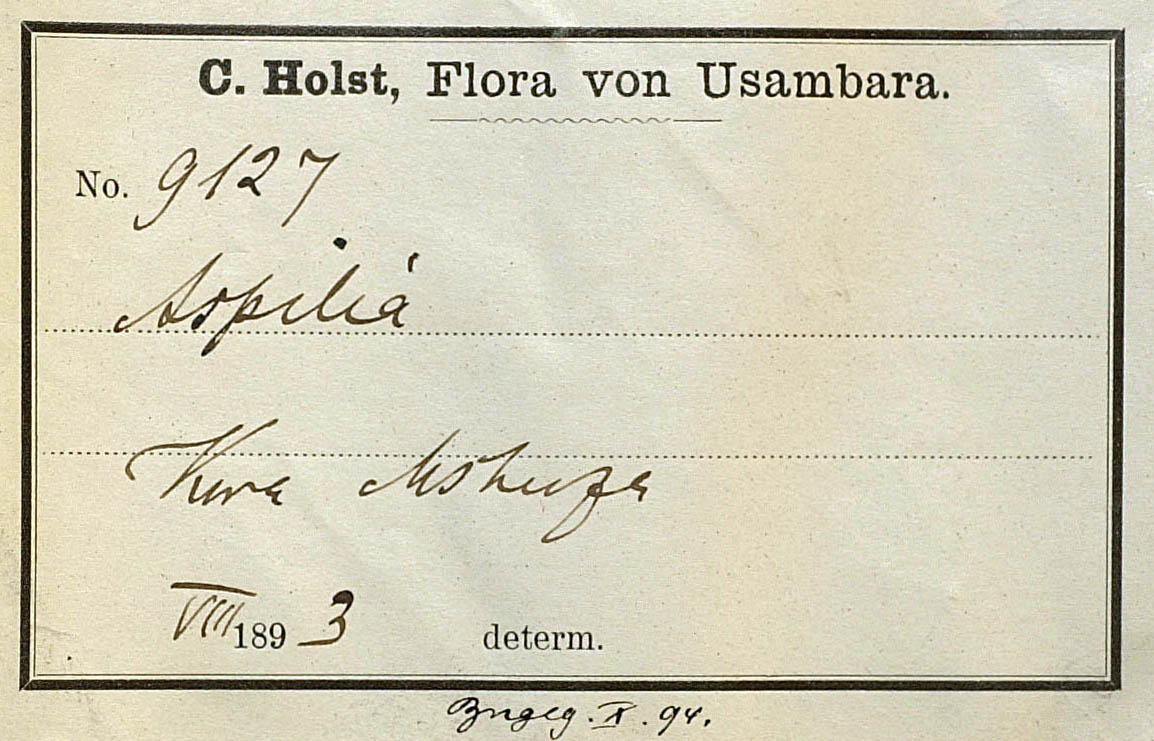 C. Holst, Flora von Usambara.
No. 9127
Aspilia
Kwa Mshuza
VIII 1893 determ.
X. 94.